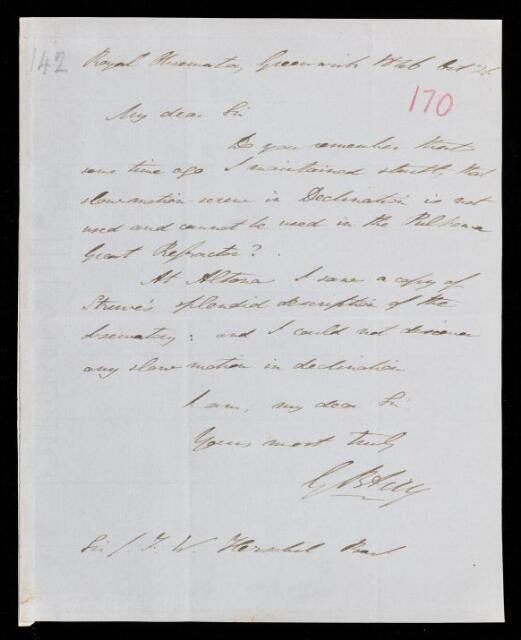 142
Royal Observatory Greenwich 1846 Oct
170
My dear Sir
Do you remember that
some time ago I maintained stoutly that
slow-motion-screw in Declination is not
used and cannot be used in the Pulkowa
Great Refractor?
At Altona I saw a copy of
Struve's splendid description of the
observatory: and I could not discover
any slow motion in declination
I am, my dear Sir
Yours most truly
G B Airy
Sir J. F. W. Herschel Bart